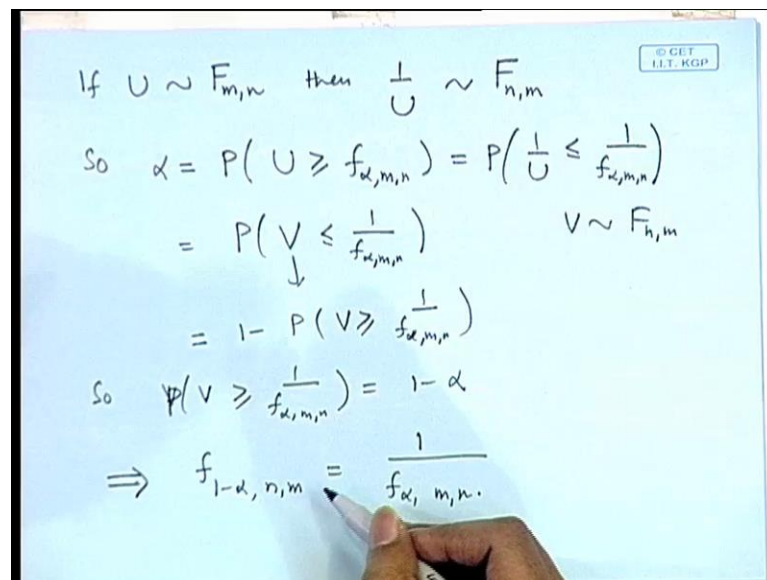 © CET
I.I.T. KGP
If U ~ F_{m,n} then 1/U ~ F_{n,m}
So α = P( U ≥ f_{α,m,n} ) = P( 1/U ≤ 1/f_{α,m,n} )
= P( V ≤ 1/f_{α,m,n} ) V ~ F_{n,m}
↓
= 1- P( V ≥ 1/f_{α,m,n} )
So P( V ≥ 1/f_{α,m,n} ) = 1-α
⇒ f_{1-α, n,m} = 1/f_{α, m,n}.